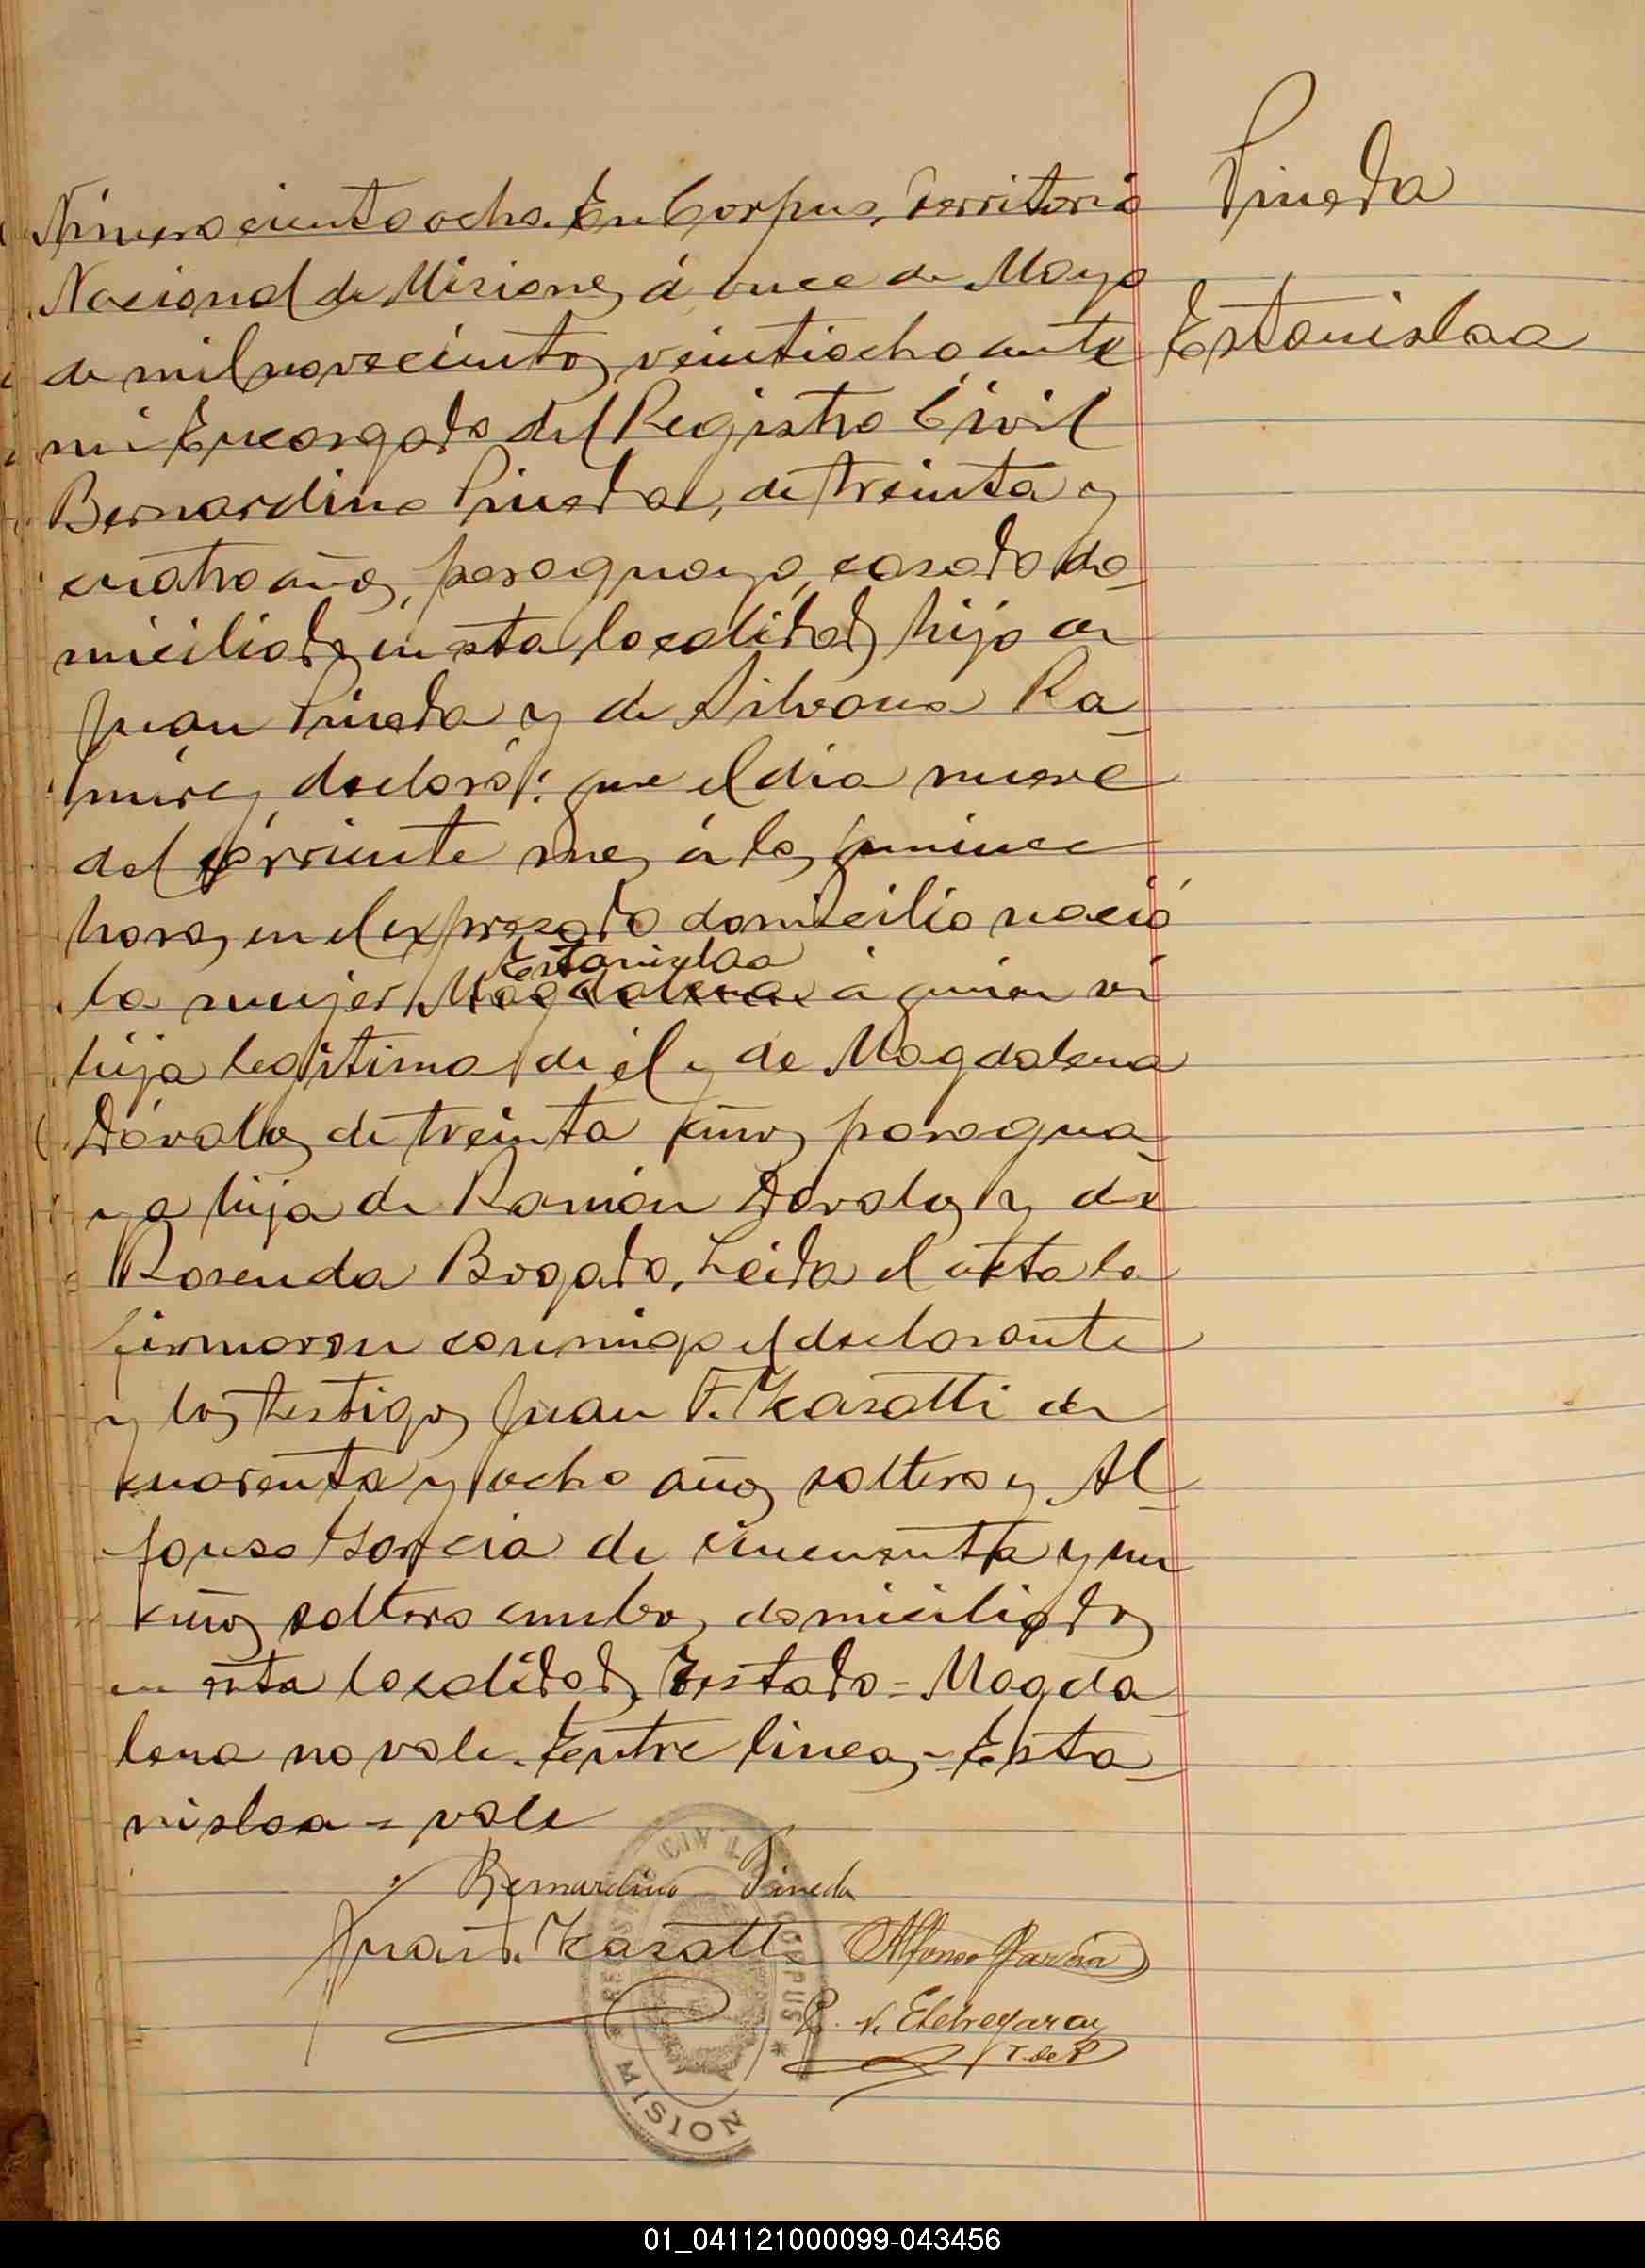 Pineda
Estanislaa
Número ciento ocho. En Corpus, Territorio
Nacional de Misiones á once de Mayo
de mil novecientos veintiocho ante
mi Encargado del Registro Civil
Bernardino Pineda, de treinta y
cuatro años, paraguayo, casado do-
miciliado en esta localidad, hijo de
Juan Pineda y de Silvana Ra-
mirez, declaró: que el día nueve
del corriente mes á las quince
horas, en el expresado domicilio nació
Estanislaa
la mujer Magdalena á quien vi
hija legitima de él y de Magdalena
Dávalos de treinta años paragua-
ya hija de Ramón Dávalos y de
Rosenda Bogado. Leida el acta la
firmaron conmigo el declarante
y los testigos Juan F. Kasatti de
cuarenta y ocho años soltero y Al-
fonso Garcia de cincuenta y un
años soltero ambos domiciliados
en esta localidad. Testado = Magda-
lena no vale. Entre lineas = Esta-
nislaa = vale
Bernardino Pineda
Juan F. Kasatti Alfonso Garcia
N. Etchegaray
J. de P
REGISTRO CIVIL CORPUS * MISION
01_041121000099-043456